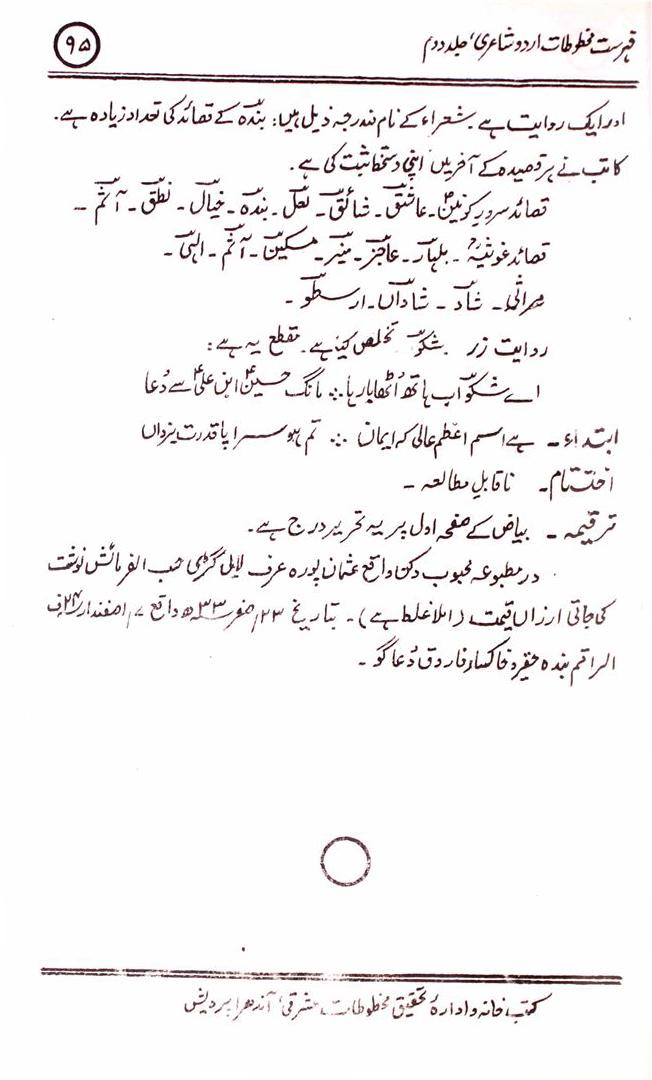 فہرست مخطوطات اردو شاعری، جلد دوم
۹۵
اور ایک روایت ہے۔ شعراء کے نام مندرجہ ذیل ہیں: بندہؔ کے قصائد کی تعداد زیادہ ہے۔
کاتب نے ہر قصیدہ کے آخر میں اپنی دستخط ثبت کی ہے۔
قصائد سرورِ کونینؐ۔ عاشقؔ۔ شائقؔ۔ لعلؔ۔ بندہؔ۔ خیالؔ۔ نطقؔ۔ آثمؔ۔
قصائد غوثیہؒ۔ بلہارؔ۔ عاجزؔ۔ منیرؔ۔ مسکینؔ۔ آثمؔ۔ الہیؔ۔
مراثی۔ شادؔ۔ شاداںؔ۔ ارسطوؔ۔
روایت زر شکوؔ تخلص کیا ہے۔ مقطع یہ ہے:
اے شکوؔ اب ہاتھ اُٹھا بارہا ؞ مانگ حسینؑ ابنِ علیؑ سے دُعا
ابتداء۔ ہے اسم اعظم عالی کہ ایمان ؞ تم ہو سراپا قدرت یزداں
اختتام۔ ناقابلِ مطالعہ۔
ترقیمہ۔ بیاض کے صفحہ اول پر یہ تحریر درج ہے۔
در مطبوعہ محبوب دکن واقع عثمان پورہ عرف لال گڑی حسب الفرمائش نوشت
کی جاتی ارزاں قیمت (املا غلط ہے)۔ بتاریخ ۲۳؍ صفر ۱۳۳۳ھ واقع ۷؍ اسفندار ۲۴ف
الراقم بندہ حقیر و خاکسار فاروق دُعا گو۔
کتب خانہ و ادارۂ تحقیق مخطوطات مشرقی، آندھرا پردیش